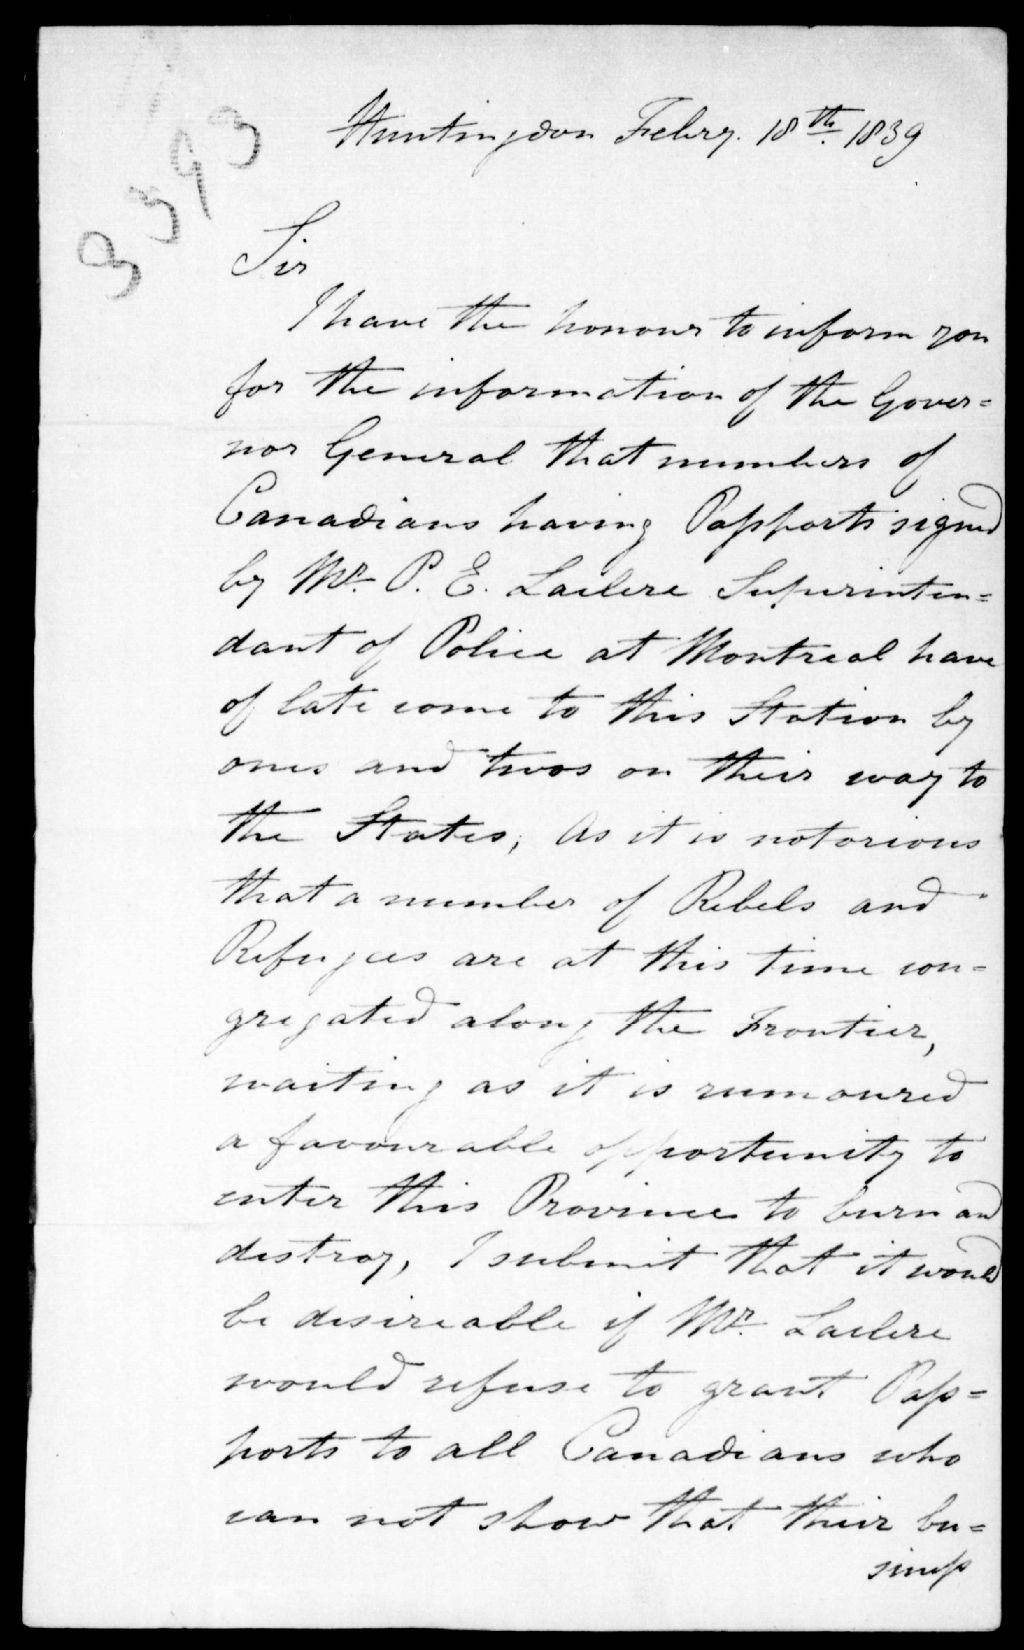 3593
Huntingdon Febry. 18th. 1839
Sir
I have the honour to inform you
for the information of the Gover=
nor General that numbers of
Canadians having Passports signed
by Mr. P. E. Leclere Superinten=
dant of Police at Montreal have
of late come to this Station by
ones and twos on their way to
the States, As it is notorious
that a number of Rebels and
Refugees are at this time con=
gregated along the Frontier,
waiting as it is rumoured
a favourable opportunity to
enter this Province to burn and
destroy, I submit that it would
be desireable if Mr. Leclere
would refuse to grant Pass=
ports to all Canadians who
can not show that their bu=
siness